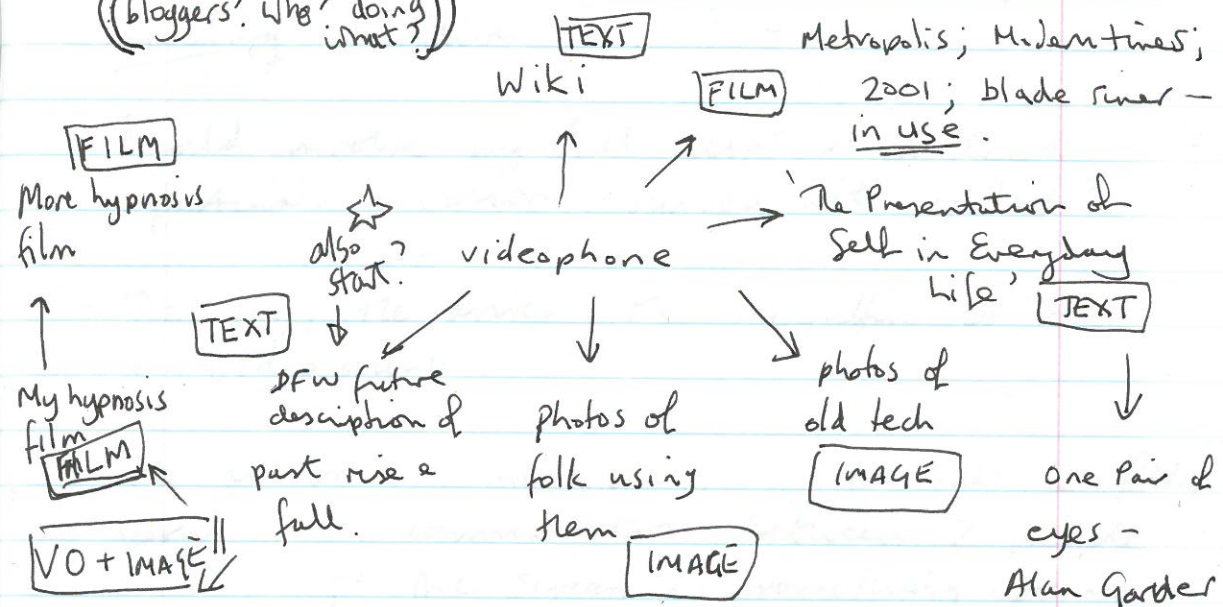 bloggers? Who? doing
what?
TEXT
Wiki
FILM
Metropolis; Modern times;
2001; blade runner –
in use.
FILM
More hypnosis
film
also
start?
videophone
'The Presentation of
Self in Everyday
Life'
TEXT
TEXT
DFW future
description of
past rise &
fall.
photos of
folk using
them
IMAGE
photos of
old tech
IMAGE
One Pair of
eyes –
Alan Garder
My hypnosis
film
FILM
VO + IMAGE